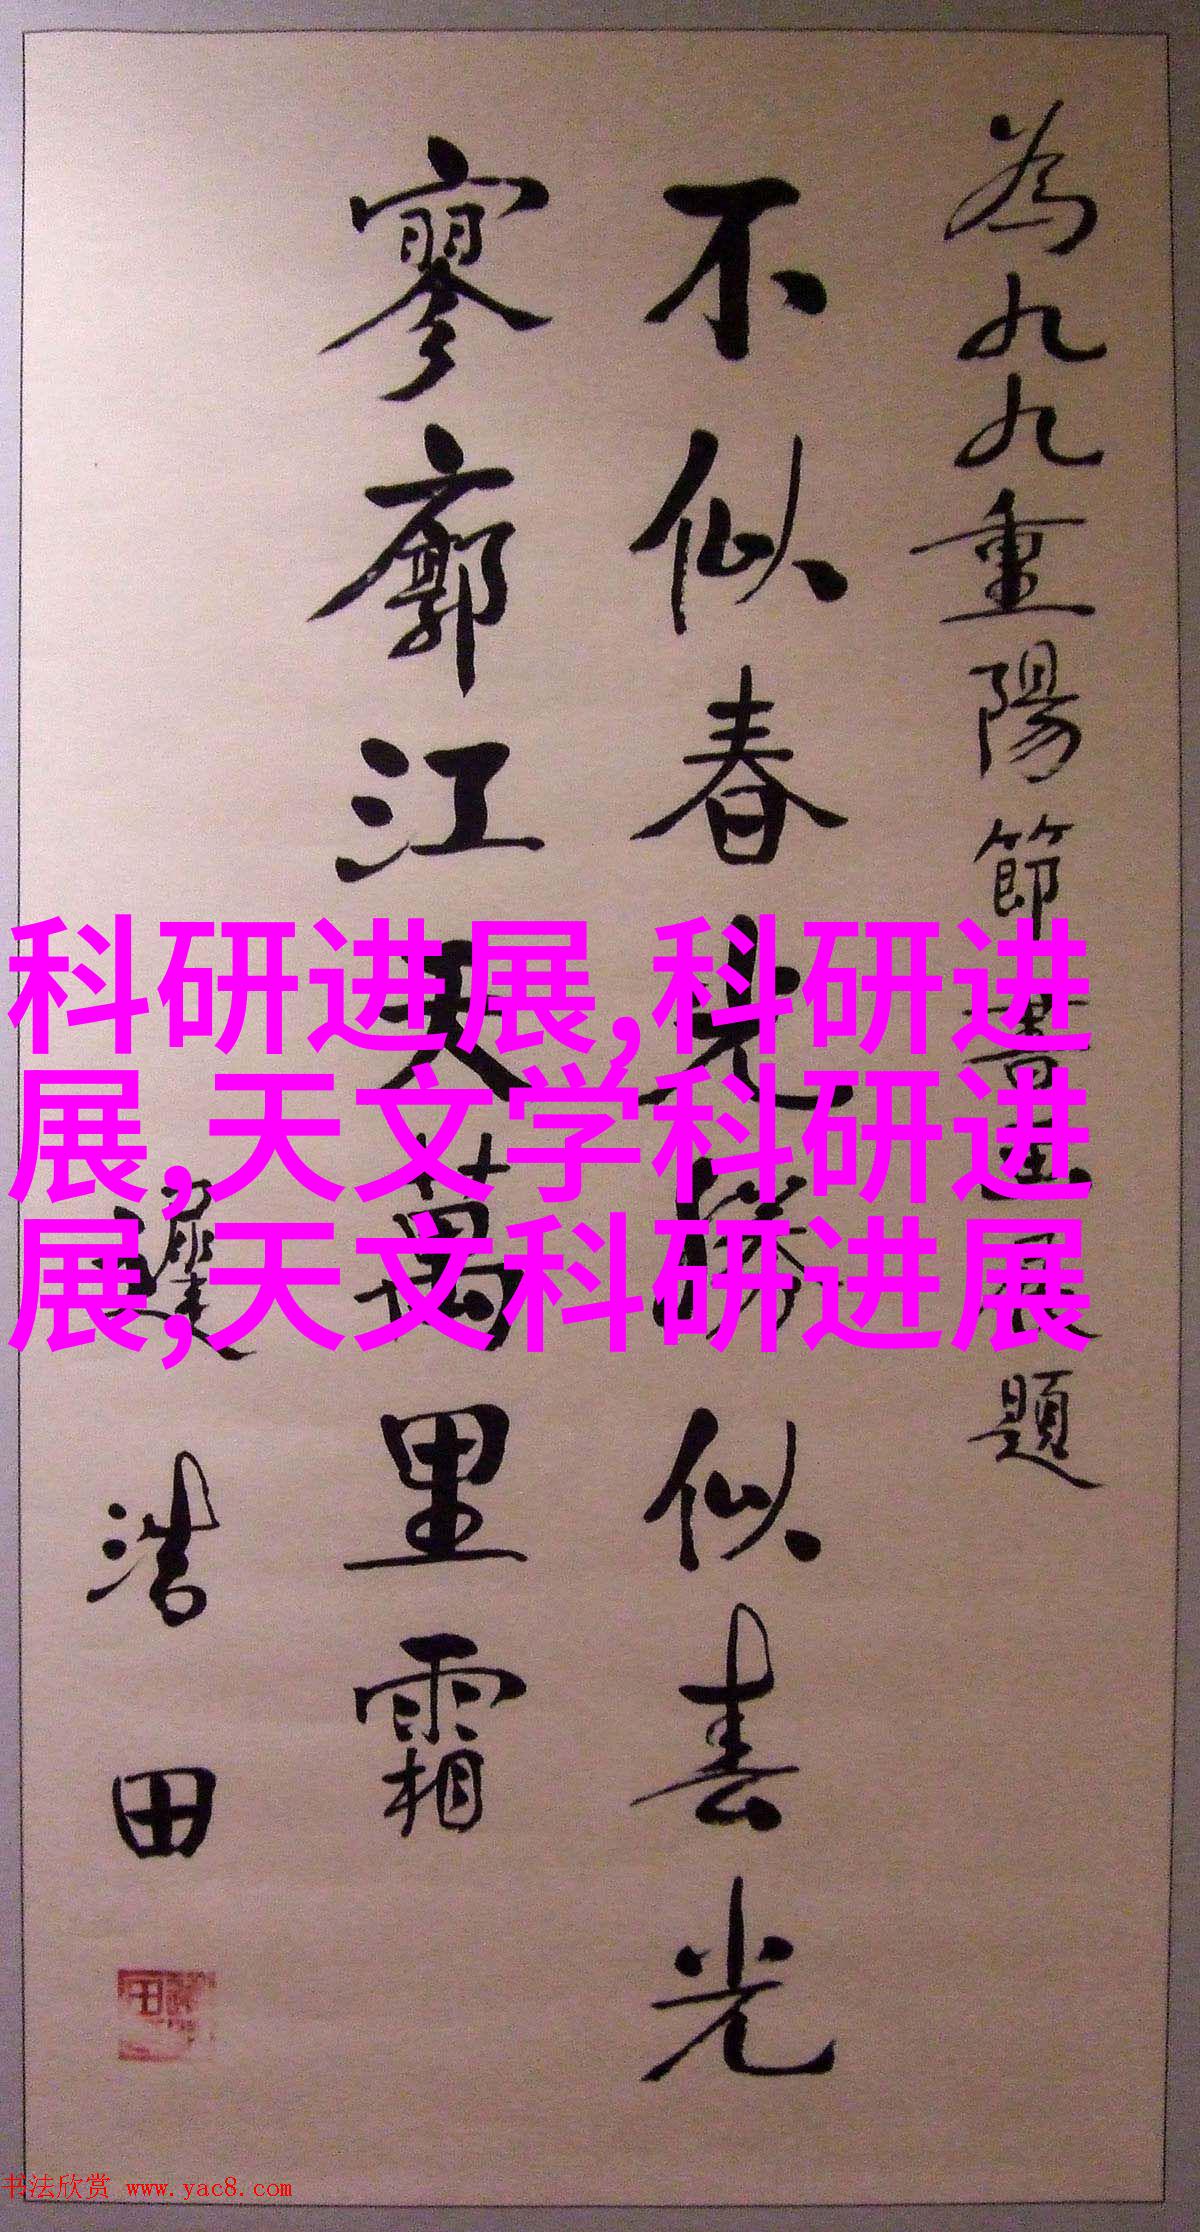 為九九重陽節書画展題
不似春光勝似春光
寥廓江天萬里霜
遲浩田
科研进展,科研进
展,天文学科研进
展,天文科研进展
书法欣赏 www.yac8.com